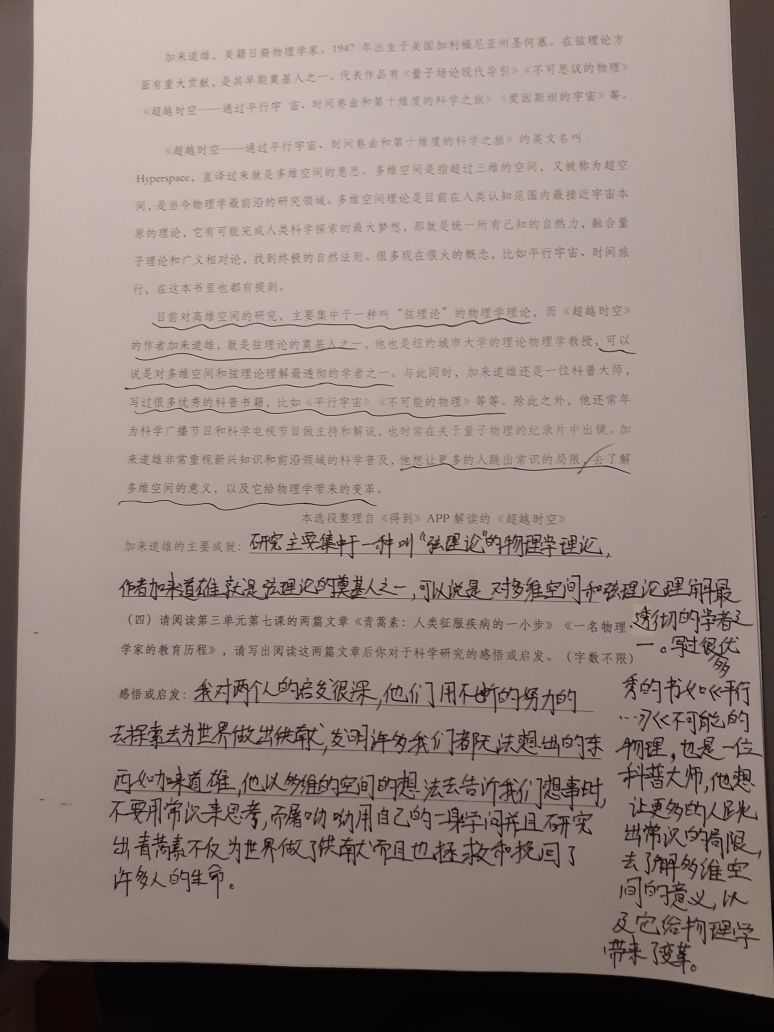 加来道雄，美籍日裔物理学家，1947 年出生于美国加利福尼亚州圣何塞。在弦理论方
面有重大贡献，是其早期奠基人之一。代表作品有《量子场论现代导引》《不可思议的物理》
《超越时空——通过平行宇 宙、时间卷曲和第十维度的科学之旅》《爱因斯坦的宇宙》等。
《超越时空——通过平行宇宙、时间卷曲和第十维度的科学之旅》的英文名叫
Hyperspace，直译过来就是多维空间的意思。多维空间是指超过三维的空间，又被称为超空
间，是当今物理学最前沿的研究领域。多维空间理论是目前在人类认知范围内最接近宇宙本
原的理论，它有可能完成人类科学探索的最大梦想，那就是统一所有已知的自然力，融合量
子理论和广义相对论，找到终极的自然法则。很多现在很火的概念，比如平行宇宙、时间旅
行，在这本书里也都有提到。
目前对高维空间的研究，主要集中于一种叫“弦理论”的物理学理论，而《超越时空》
的作者加来道雄，就是弦理论的奠基人之一。他也是纽约城市大学的理论物理学教授，可以
说是对多维空间和弦理论理解最透彻的学者之一。与此同时，加来道雄还是一位科普大师，
写过很多优秀的科普书籍，比如《平行宇宙》《不可能的物理》等等。除此之外，他还常年
为科学广播节目和科学电视节目做主持和解说，也时常在关于量子物理的纪录片中出镜。加
来道雄非常重视新兴知识和前沿领域的科学普及，他想让更多的人跳出常识的局限，去了解
多维空间的意义，以及它给物理学带来的变革。
本选段整理自《得到》APP 解读的《超越时空》
加来道雄的主要成就：研究主要集中于一种叫“弦理论”的物理学理论，
作者加来道雄就是弦理论的奠基人之一，可以说是 对多维空间和弦理论理解最
透彻的学者之
一。写过很多优
秀的书如《平行
…》《不可能的
物理，也是一位
科普大师，他想
让更多的人跳
出常识的局限，
去了解多维空
间的意义，以
及它给物理学
带来了变革。
（四）请阅读第三单元第七课的两篇文章《青蒿素：人类征服疾病的一小步》《一名物理
学家的教育历程》，请写出阅读这两篇文章后你对于科学研究的感悟或启发。（字数不限）
感悟或启发：我对两个人的启发很深，他们用不断的努力的
去探索去为世界做出供献，发明许多我们都无法想出的东
西如加来道雄，他以多维的空间的想法去告诉我们想事时，
不要用常识来思考，而屠呦呦用自己的一身学问并且研究
出青蒿素不仅为世界做了供献而且也拯救和挽回了
许多人的生命。